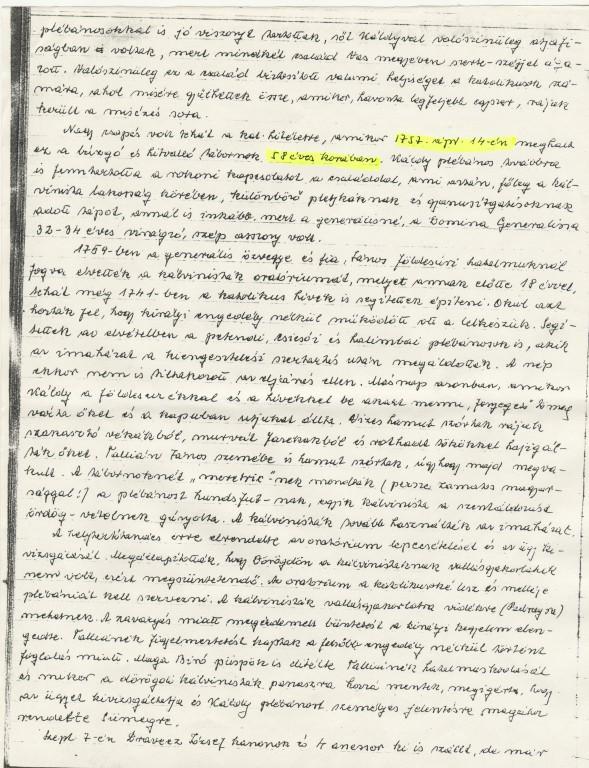 plébánosokkal is jó viszonyt tartottak, sőt Káldyval valószínűleg atyafi-
ságban is voltak, mert mindkét család Vas megyében szerte-széjjel
zott. Valószínűleg ez a család biztosított valami helyiséget a katolikusok szá-
mára, ahol misére gyűlhettek össze, amikor, havonta legfeljebb egyszer, rájuk
került a misézés sora.
Nagy csapás volt tehát a kat. hitéletre, amikor 1757. ápr. 14-én meghalt
ez a buzgó és hitvalló tábornok 58 éves korában. Káldy plébános továbbra
is fenntartotta a rokoni kapcsolatot a családdal, ami aztán, főleg a kál-
vinista lakosság körében, különböző pletykáknak és gyanúsítgatásoknak
adott tápot, annál is inkább, mert a generálisné, a Domina Generalissa
32-34 éves virágzó, szép asszony volt.
1759-ben a generális özvegye és fia, János földesúri hatalmuknál
fogva elvették a kálvinisták oratóriumát, melyet annak előtte 18 évvel,
tehát még 1741-ben a katolikus hívek is segítettek építeni. Okul azt
hozták fel, hogy királyi engedély nélkül működött ott a lelkészük. Segí-
tettek az elvételben a padragi, csicsói és halimbai plébánosok is, akik
az imaházat a kiengesztelési szertartás után megáldották. A nép
ekkor nem is tiltakozott az eljárás ellen. Másnap azonban, amikor
Káldy a földesurakkal és a hívekkel be akart menni, fenyegető tömeg
várta őket és a kapuban útjukat állta. Vizes hamut szórtak rájuk
szakasztó vékákból, murvát fazekakból és rothadt tökökkel hajigál-
ták őket. Palliáni János szemébe is hamut szórtak, úgyhogy majd megva-
kult. A tábornoknét „meretrix"-nek mondták (persze zamatos magyar-
sággal!) a plébánost hundsfut-nak, egyik kálvinista a szentáldozást
ördög-vételnek gúnyolta. A kálvinisták tovább használták az imaházat.
A helytartótanács erre elrendelte az oratórium lepecsételését és az ügy ki-
vizsgálását. Megállapították, hogy Dörögdön a kálvinistáknak vallásgyakorlatuk
nem volt, ezért megszüntetendő. Az oratórium a katolikusoké lesz és melléje
plébániát kell szervezni. A kálvinisták vallásgyakorlatra vidékre (Padragra)
mehetnek. A zavargás miatt megérdemelt büntetést a királyi kegyelem elen-
gedte. Palliániék figyelmeztetést kaptak a felsőbb engedély nélkül történt
foglalás miatt. Maga Bíró püspök is elítélte Palliániék hatalmaskodását
és mikor a dörögdi kálvinisták panaszra hozzá mentek, megígérte, hogy
az ügyet kivizsgáltatja és Káldy plébánost személyes jelentésre magához
rendelte Sümegre.
Szept. 7-én Dravecz József kanonok és 4 asessor ki is szállt, de már